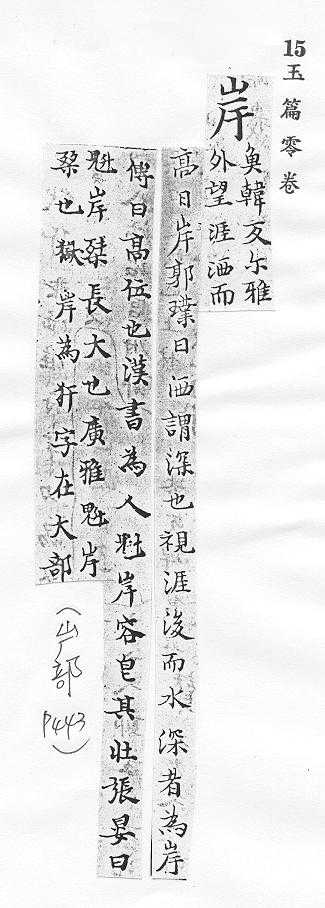 15 玉篇零卷
岸
魚韓反尒雅
外望涯洒而
高曰岸郭璞曰洒謂深也視涯浚而水深者為岸
傳曰高位也漢書為人魁岸容皃其壮張晏曰
魁岸桀長大也廣雅魁岸
桀也獄岸為犴字在犬部
(屵部 P443)